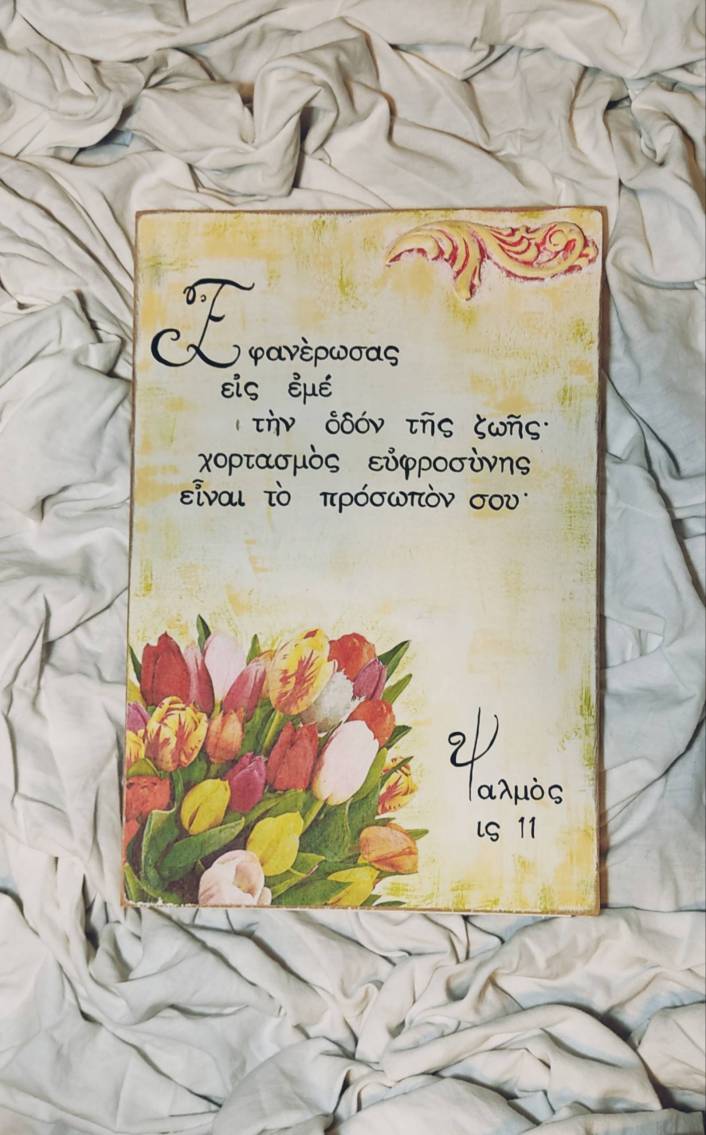 Ἐφανὲρωσας
εἰς ἐμέ
τὴν ὁδόν τῆς ζωῆς·
χορτασμὸς εὐφροσὺνης
εἶναι τὸ πρόσωπὸν σου·
Ψαλμὸς
ις 11